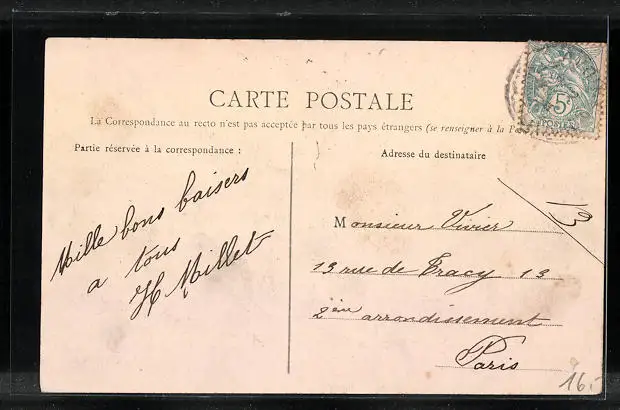 CARTE POSTALE
La Correspondance au recto n'est pas acceptée par tous les pays étrangers (se renseigner à la
Partie réservée à la correspondance :
Adresse du destinataire
Mille bons baisers
a tous
H Millet
13
Monsieur Vivier
13 rue de Tracy 13
2èm arrondissement
Paris
5
16.-